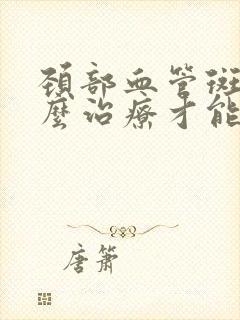 頸部血管斑
麼治療才能
唐簫